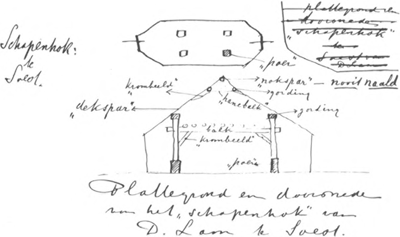 Schapenhok:
te
Soest.
"poer"
plattegrond en
doorsnede
"schapenhok"
te
Soest van
D. Laan
nooit naald
"krombeeld"
"nokspar"
gording
"hanebelk"
"dekspar"
gording
balk
"krombeeld"
poer
Plattegrond en doorsnede
van het "schapenhok" van
D. Laan te Soest.